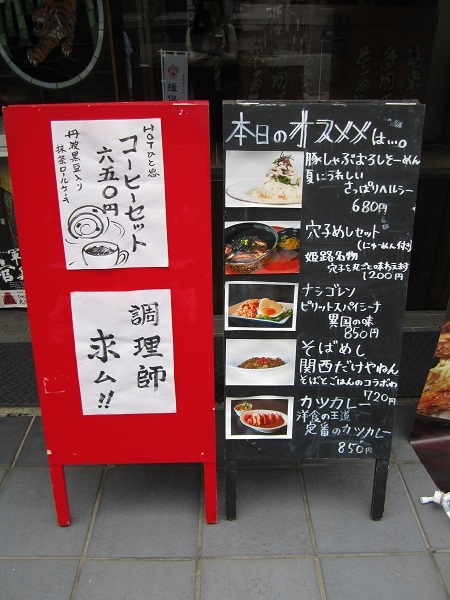 HOTひと息
コーヒーセット
六五〇円
丹波黒豆入り
抹茶ロールケーキ
調理師
求ム!!
本日のオススメは...。
豚しゃぶおろしそーめん
夏にうれしい
さっぱりヘルシー
680円
穴子めしセット
(にゅーめん付き)
姫路名物
穴子を丸ごと味わえます
1200円
ナシゴレン
ピリットスパイシーナ
異国の味
850円
そばめし
関西だけやねん
そばとごはんのコラボわ
720円
カツカレー
洋食の王道
定番のカツカレー
850円